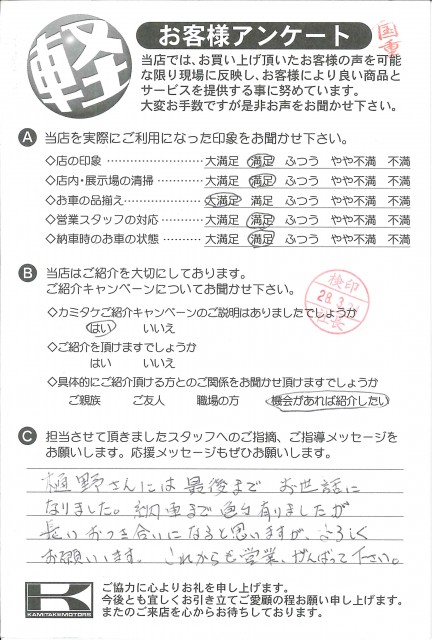 軽
お客様アンケート
国重
当店では、お買い上げ頂いたお客様の声を可能
な限り現場に反映し、お客様により良い商品と
サービスを提供する事に努めています。
大変お手数ですが是非お声をお聞かせ下さい。
A 当店を実際にご利用になった印象をお聞かせ下さい。
◇店の印象 ………………… 大満足 満足 ふつう やや不満 不満
◇店内・展示場の清掃 ………… 大満足 満足 ふつう やや不満 不満
◇お車の品揃え ……………… 大満足 満足 ふつう やや不満 不満
◇営業スタッフの対応 ………… 大満足 満足 ふつう やや不満 不満
◇納車時のお車の状態 ………… 大満足 満足 ふつう やや不満 不満
B 当店はご紹介を大切にしております。
ご紹介キャンペーンについてお聞かせ下さい。
検印
28.3.
社長
◇カミタケご紹介キャンペーンのご説明はありましたでしょうか
はい いいえ
◇ご紹介を頂けますでしょうか
はい いいえ
◇具体的にご紹介頂ける方とのご関係をお聞かせ頂けますでしょうか
ご親族 ご友人 職場の方 機会があれば紹介したい
C 担当させて頂きましたスタッフへのご指摘、ご指導メッセージを
お願いします。応援メッセージもぜひお願いします。
樋野さんには最後まで お世話に
なりました。納車まで色々有りましたが
長い おつき合いになると思いますが、よろしく
お願いいます。これからも営業、がんばって下さい。
KAMITAKEMOTORS
ご協力に心よりお礼を申し上げます。
今後とも宜しくお引き立てご愛顧の程お願い申し上げます。
またのご来店を心からお待ちしております。